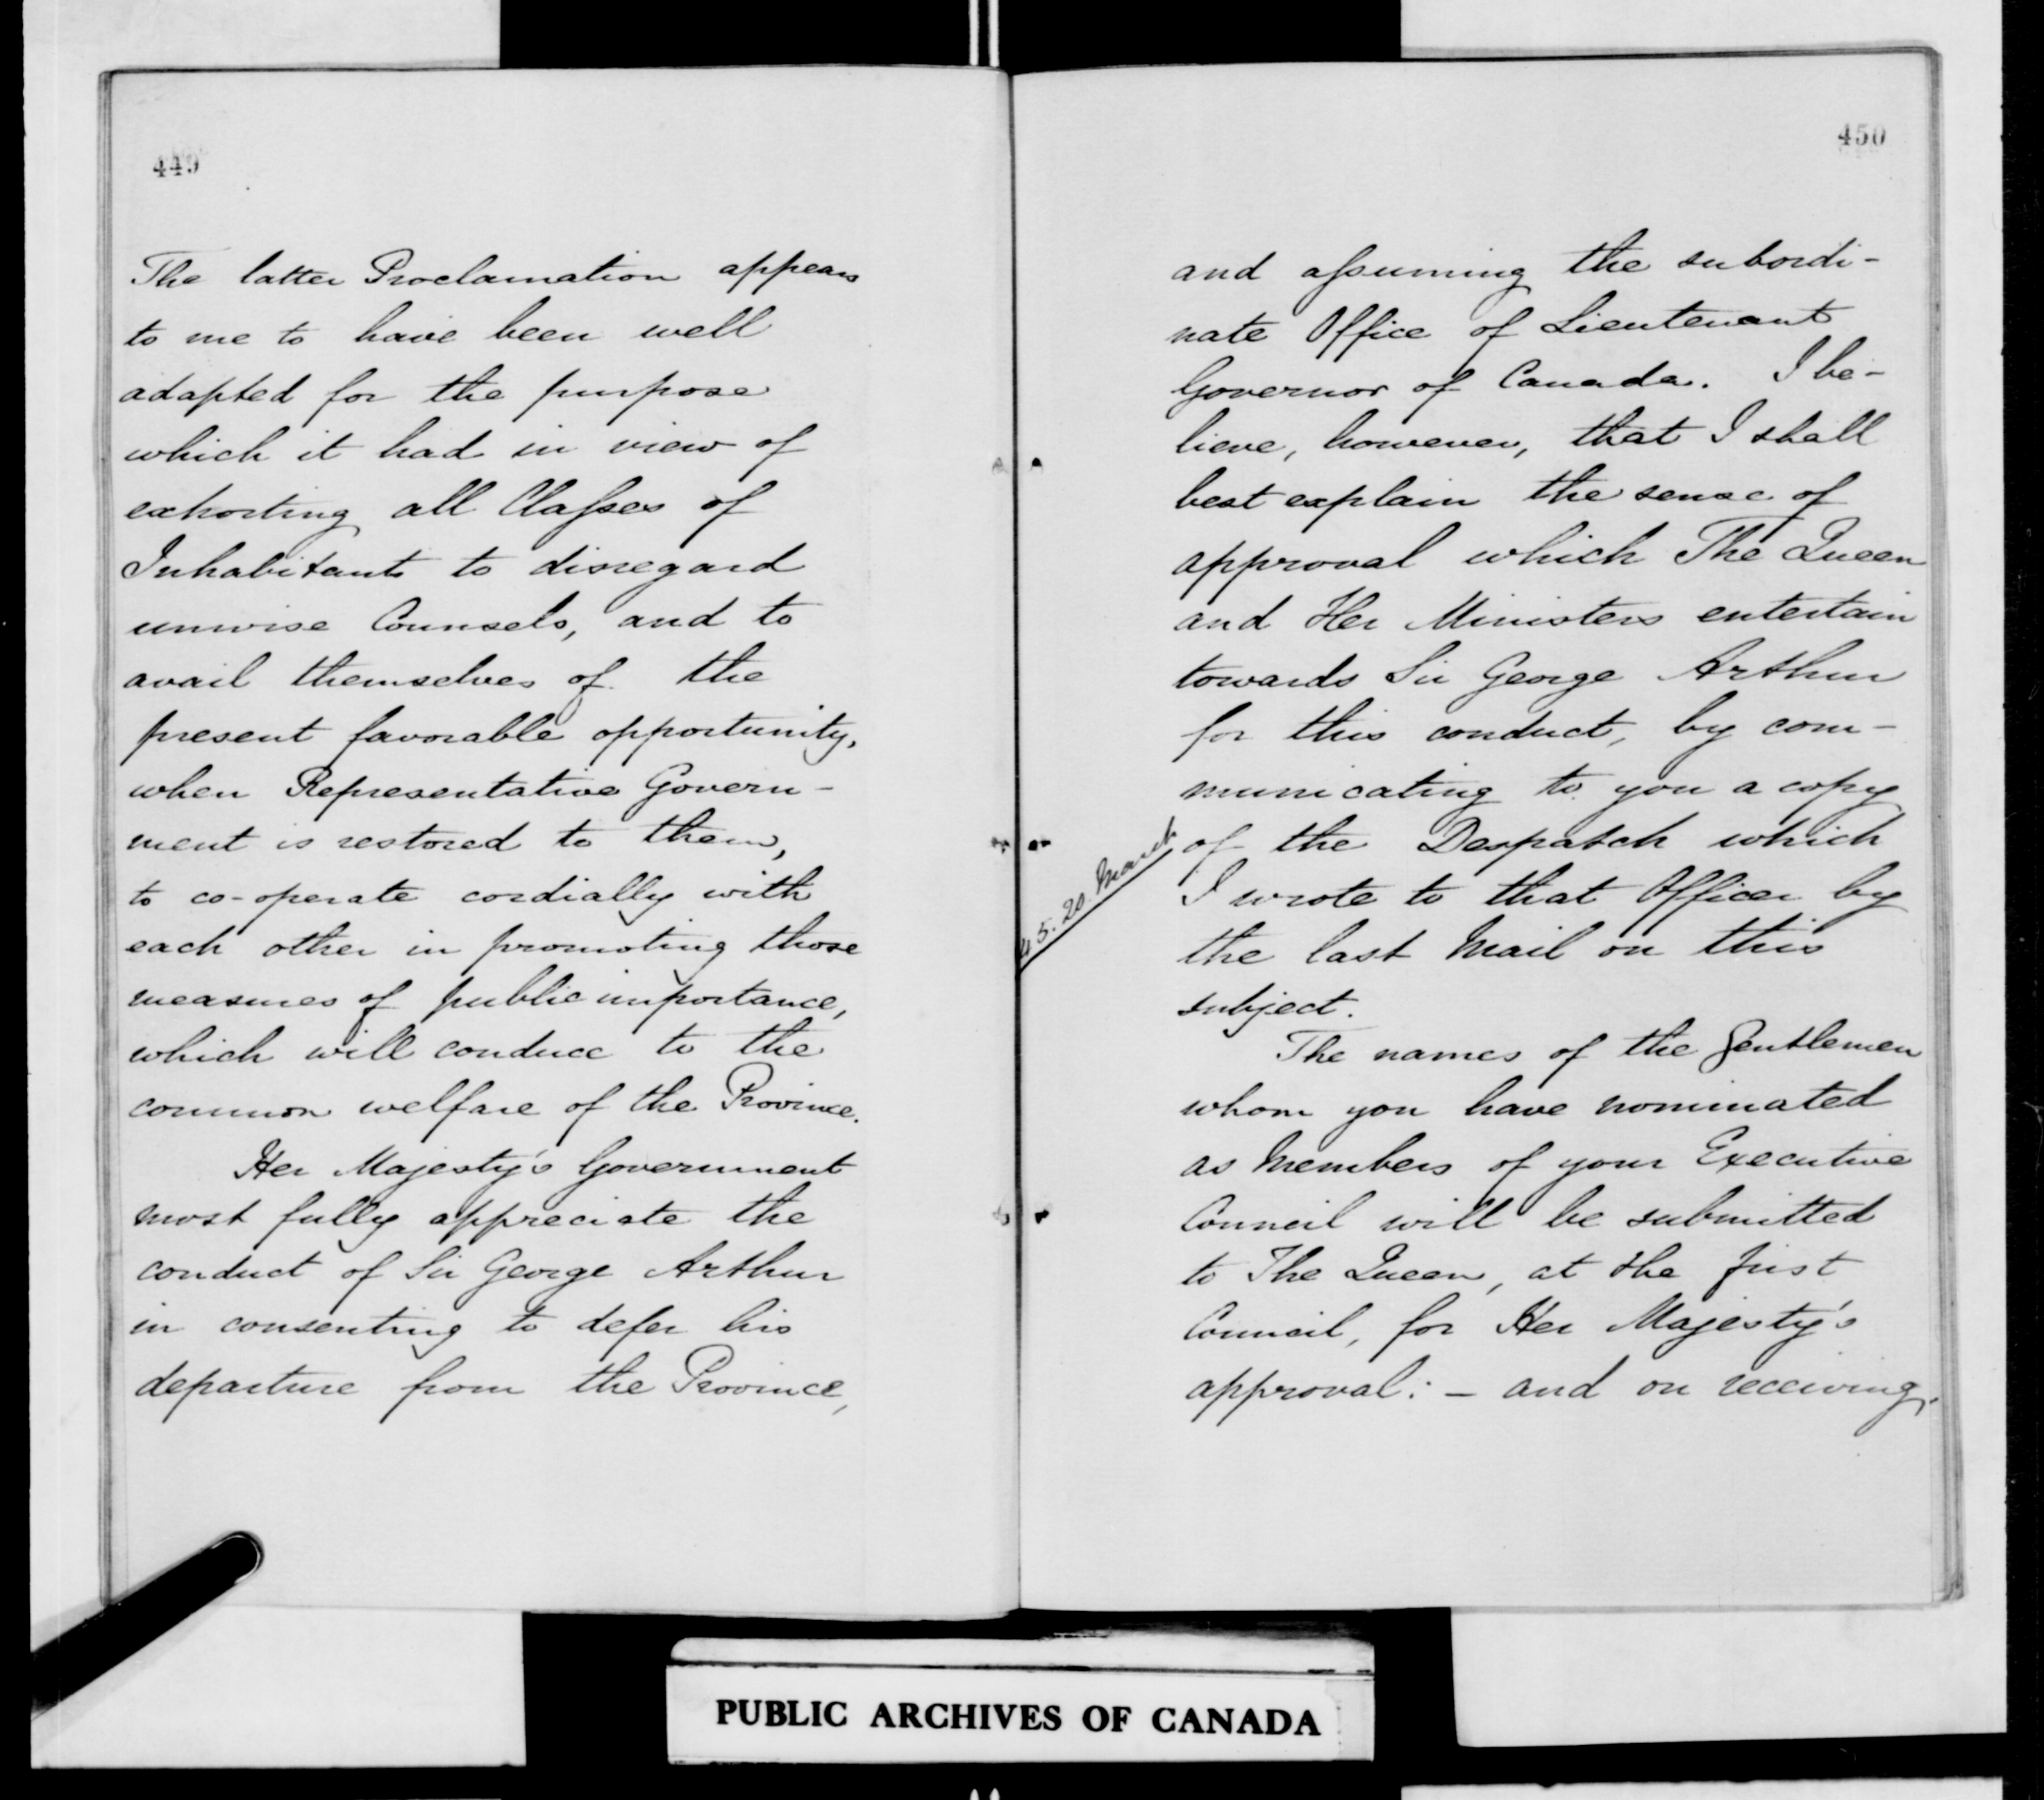 449
The latter Proclamation appears
to me to have been well
adapted for the purpose
which it had in view of
exhorting all Classes of
Inhabitants to disregard
unwise Counsels, and to
avail themselves of the
present favorable opportunity,
when Representative Govern-
ment is restored to them,
to co-operate cordially with
each other in promoting those
measures of public importance,
which will conduce to the
common welfare of the Province.
Her Majesty's Government
most fully appreciate the
conduct of Sir George Arthur
in consenting to defer his
departure from the Province,
450
and assuming the subordi-
nate Office of Lieutenant
Governor of Canada. I be-
lieve, however, that I shall
best explain the sense of
approval which The Queen
and Her Ministers entertain
towards Sir George Arthur
for this conduct, by com-
municating to you a copy
20. March
of the Despatch which
I wrote to that Officer by
the last Mail on this
subject.
The names of the Gentlemen
whom you have nominated
as Members of your Executive
Council will be submitted
to The Queen, at the first
Council, for Her Majesty's
approval: - and on receiving
PUBLIC ARCHIVES OF CANADA